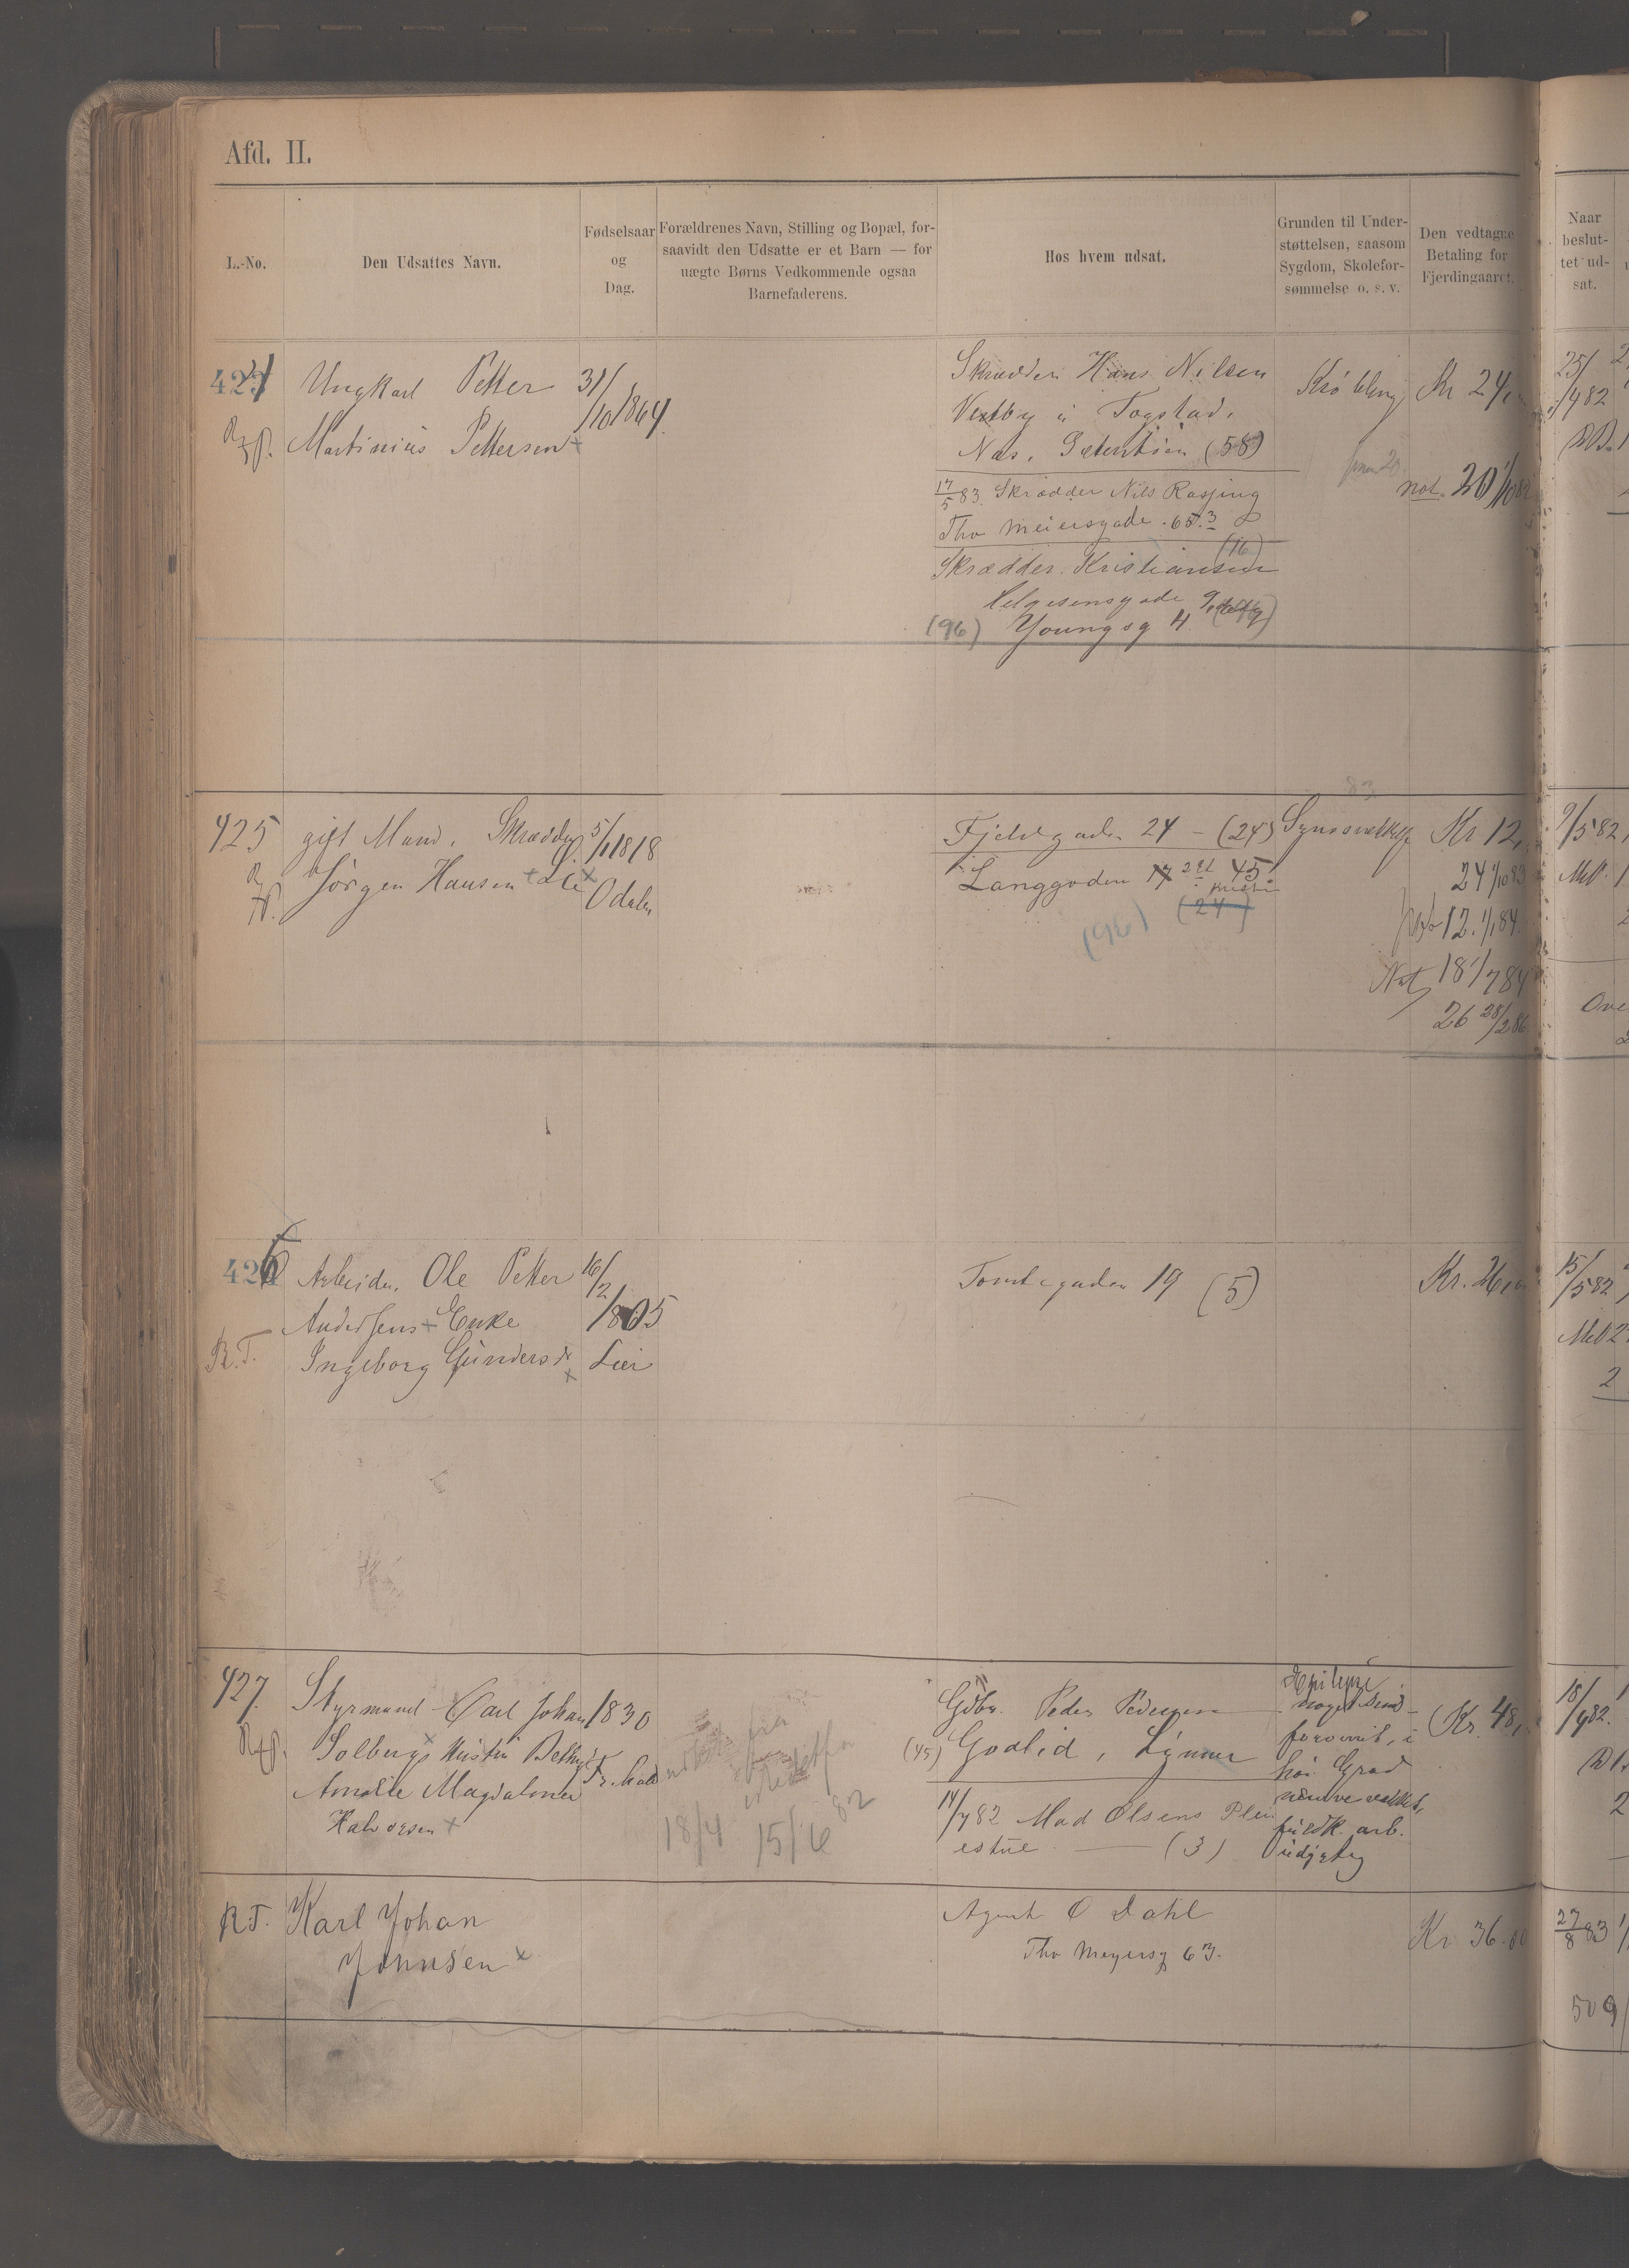 Afd. II.
L.-No.
Den Udsattes Navn.
Fødselsaar
og
Dag.
Forældrenes Navn, Stilling og Bopæl, for-
saavidt den Udsatte er et Barn — for
uægte Børns Vedkommende ogsaa
Barnefaderens.
Hos hvem udsat.
Grunden til Under-
støttelsen, saasom
Sygdom, Skolefor-
sømmelse o. s. v.
Den vedtagne
Betaling for
Fjerdingaaret.
Naar
beslut-
tet ud-
sat.
424
Ungkarl Petter
Martinius Pettersen
31/
/10 1864
Skrædder Hans Nilsen
Vestby i Togstad,
Næs, (58)
17/5 83 Skrædder Nils
Tho Meiersgade 65.3
(16)
Skrædder Kristiansen
Helgesensgade 9
(96) Youngsg 4
Krøbling
Kr 24
not. 20 1/10 82
25/
/4 82
425
gift Mand, Skrædder
Jörgen Hansen Lie
5/1 1818
Odalen
Fjeldgaden 24 - (24)
Langgaden 17 2 45
(24)
(96)
Synssvækkelse
Kr 12,
24 1/10 83
12. 1/1 84
Not 18 1/7 84
26 28/2 86
9/5 82
426
R.T.
Arbeider Ole Petter
Andersens Enke
Ingeborg Gundersdr
16/
/2
1805
Lier
Tomtegaden 19 (5)
Kr.
15/
/5 82
427
Styrmand Carl Johan
Solbergs Hustru
Amalie Magdalena
Halvorsen
1830
Fr.hald
18/4 15/6 82
Gdbr. Peder Pedersen
(45) Godlid, Lunner
14/7 82 Mad Olsens Plei
estue — (3)
Epilepsi
noget sind
forvirret, i
høi Grad
nervesvækket,
fuldk. arb.
udygtig
Kr. 48,
18/
/4 82.
R.T.
Karl Johan
Johnsen
Agent O Dahl
Tho Meyersg 63.
Kr 36.00
27/8 83
509